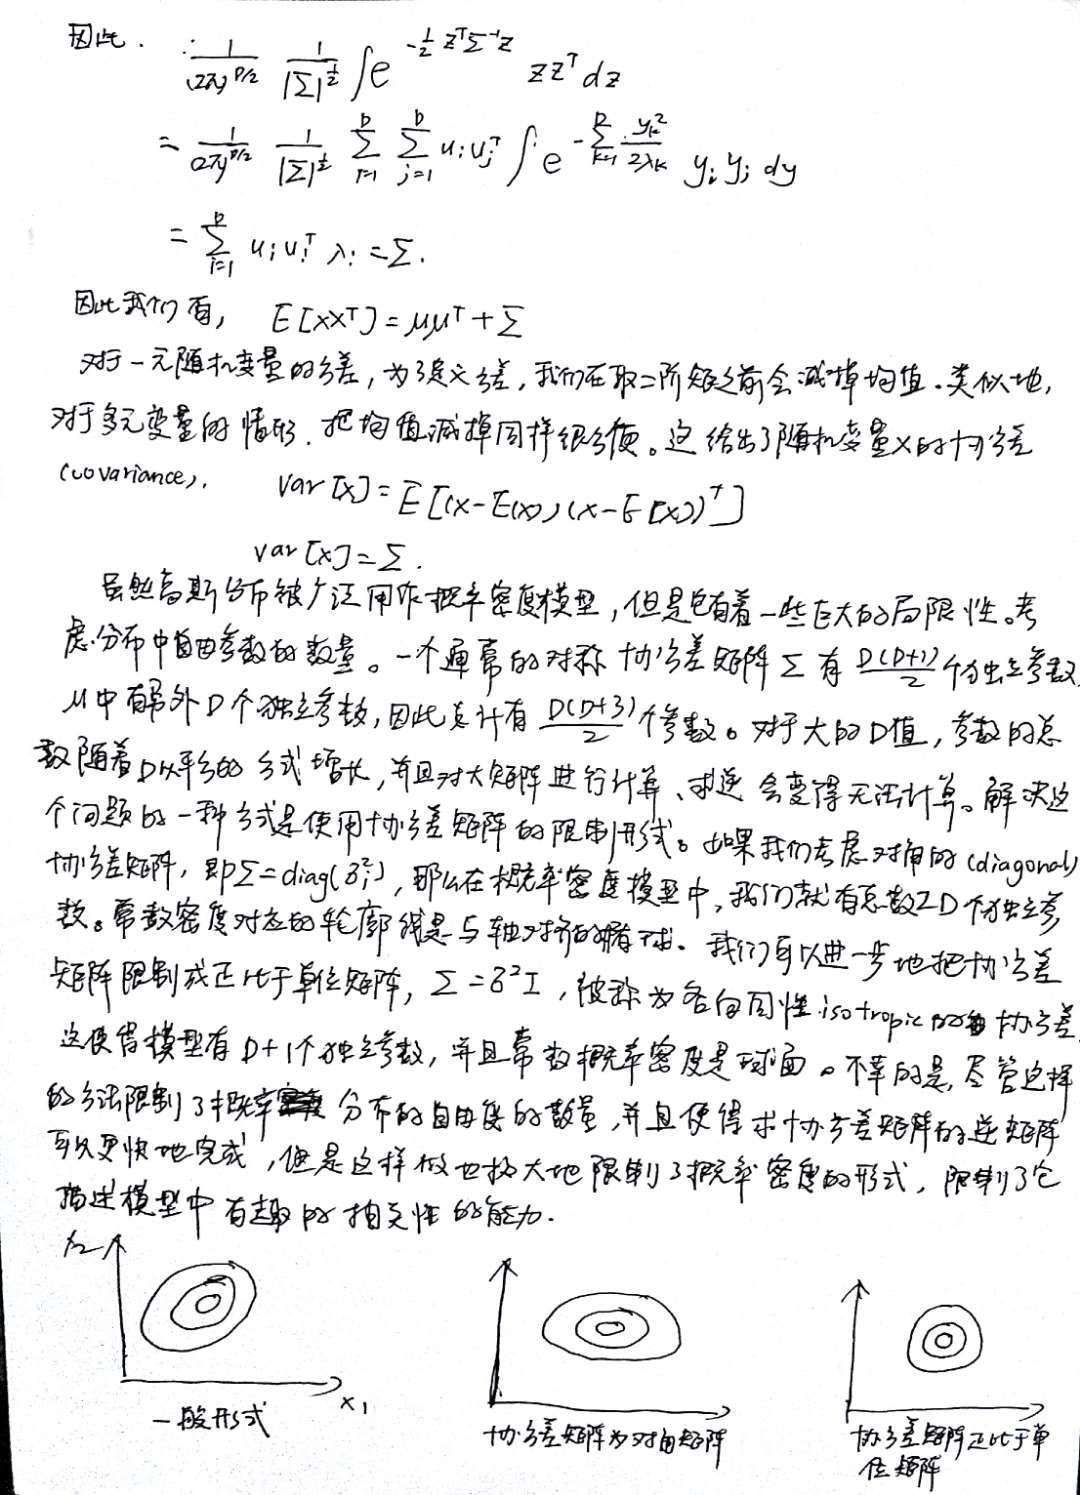 因此. : 1/(2π)^{D/2} 1/|Σ|^{1/2} ∫e^{-1/2 z^TΣ^{-1}z} zz^T dz
= 1/(2π)^{D/2} 1/|Σ|^{1/2} Σ_{i=1}^{D} Σ_{j=1}^{D} u_i u_j^T ∫e^{-Σ_{k=1}^{D} y_k^2/2λ_k} y_i y_j dy
= Σ_{i=1}^{D} u_i u_i^T λ_i = Σ.
因此我们有, E[XX^T] = μμ^T + Σ
对于一元随机变量的方差,为了定义方差,我们在取二阶矩之前会减掉均值.类似地,
对于多元变量的情形.把均值减掉同样很方便。这给出了随机变量X的协方差
(covariance). Var[X] = E[(X-E(X))(X-E[X])^T]
var[X] = Σ.
虽然高斯分布被广泛用作概率密度模型,但是它有着一些巨大的局限性。考
虑分布中自由参数的数量。一个通常的对称协方差矩阵Σ有D(D+1)/2个独立参数
μ中有另外D个独立参数,因此总计有D(D+3)/2个参数。对于大的D值,参数的总
数随着D以平方的方式增长,并且对大矩阵进行计算、求逆会变得无法计算。解决这
个问题的一种方式是使用协方差矩阵的限制形式。如果我们考虑对角的(diagonal)
协方差矩阵,即Σ=diag(δ_i^2),那么在概率密度模型中,我们就有总数2D个独立参
数。常数密度对应的轮廓线是与轴对齐的椭球.我们可以进一步地把协方差
矩阵限制成正比于单位矩阵,Σ=δ^2I,被称为各向同性isotropic的协方差
这使得模型有D+1个独立参数,并且常数概率密度是球面。不幸的是,尽管这样
的方法限制了概率分布的自由度的数量,并且使得求协方差矩阵的逆矩阵
可以更快地完成,但是这样做也极大地限制了概率密度的形式,限制了它
描述模型中有趣的相关性的能力.
x_2
x_1
一般形式
协方差矩阵为对角矩阵
协方差矩阵正比于单
位矩阵